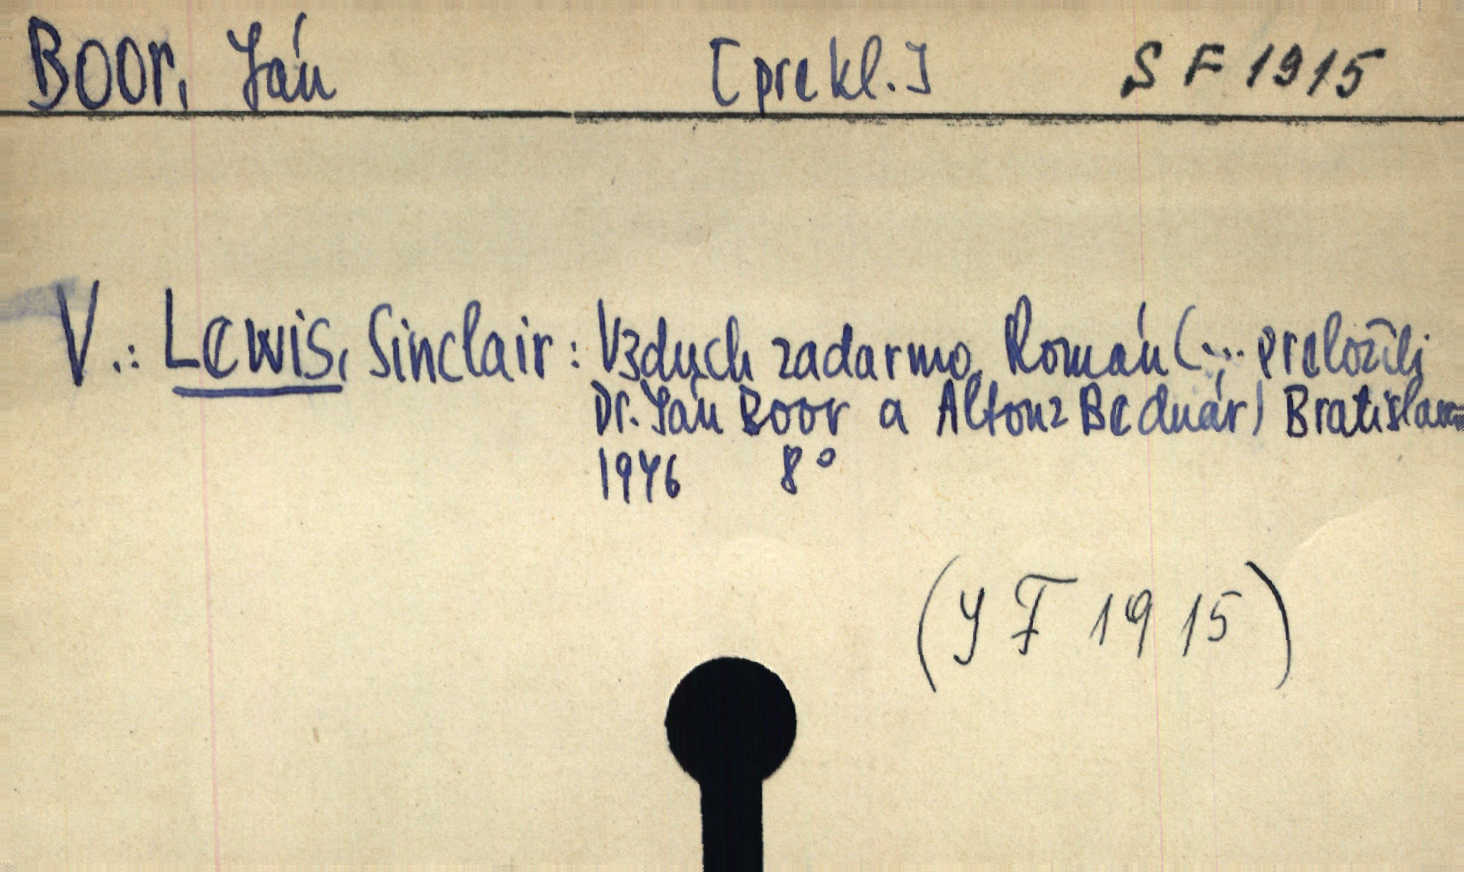 Boor, Ján [prekl.] SF 1915
V.: Lewis, Sinclair: Vzduch zadarmo. Román (... preložili
Dr. Ján Boor a Alfonz Bednár) Bratislava
1946 8°
(SF 1915)